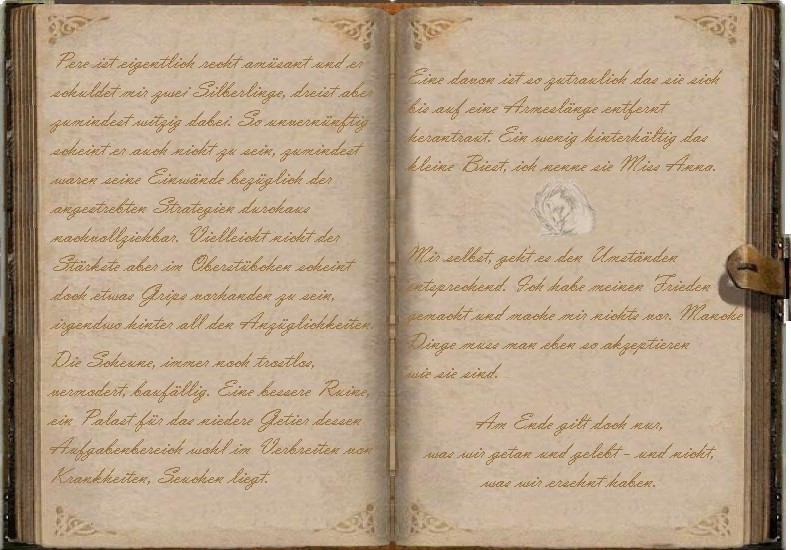 Pere ist eigentlich recht amüsant und er
schuldet mir zwei Silberlinge, dreist aber
zumindest witzig dabei. So unvernünftig
scheint er auch nicht zu sein, zumindest
waren seine Einwände bezüglich der
angestrebten Strategien durchaus
nachvollziehbar. Vielleicht nicht der
Stärkste aber im Oberstübchen scheint
doch etwas Grips vorhanden zu sein,
irgendwo hinter all den Anzüglichkeiten.
Die Scheune, immer noch trostlos,
vermodert, baufällig. Eine bessere Ruine,
ein Palast für das niedere Getier dessen
Aufgabenbereich wohl im Verbreiten von
Krankheiten, Seuchen liegt.
Eine davon ist so zutraulich das sie sich
bis auf eine Armeslänge entfernt
herantraut. Ein wenig hinterhältig das
kleine Biest, ich nenne sie Miss Anna.
Mir selbst, geht es den Umständen
entsprechend. Ich habe meinen Frieden
gemacht und mache mir nichts vor. Manche
Dinge muss man eben so akzeptieren
wie sie sind.
Am Ende gilt doch nur,
was wir getan und gelebt - und nicht,
was wir ersehnt haben.